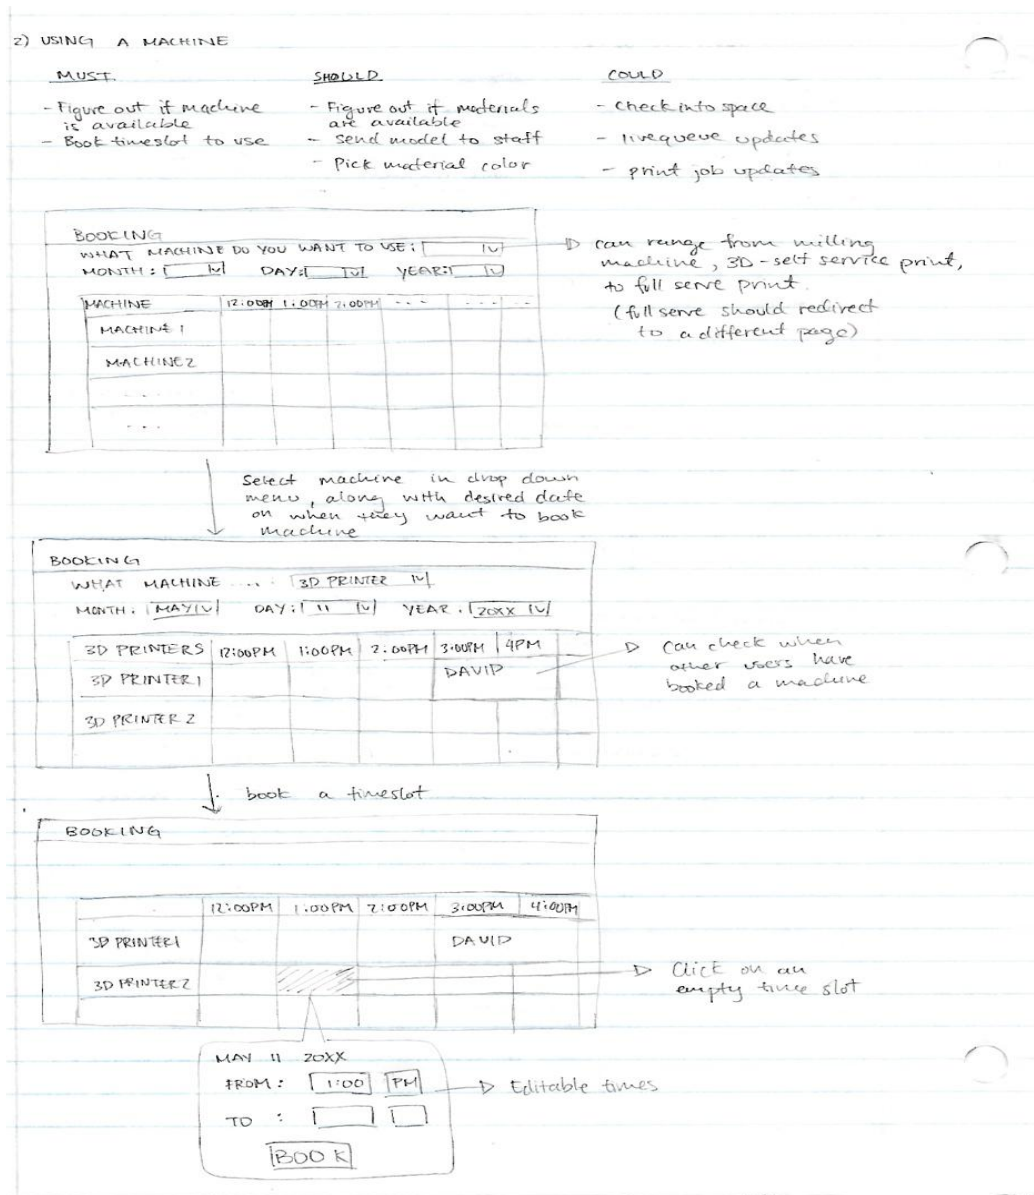 2) USING A MACHINE
MUST
- Figure out if machine
is available
- Book timeslot to use
SHOULD
- Figure out if materials
are available
- send model to staff
- Pick material color
COULD
- check into space
- livequeue updates
- print job updates
BOOKING
WHAT MACHINE DO YOU WANT TO USE:
MONTH: DAY: YEAR:
MACHINE 12:00PM 1:00PM 2:00PM --- --- --
MACHINE 1
MACHINE 2
...
...
can range from milling
machine, 3D-self service print,
to full serve print.
(full serve should redirect
to a different page)
Select machine in drop down
menu, along with desired date
on when they want to book
machine
BOOKING
WHAT MACHINE ....: 3D PRINTER
MONTH: MAY DAY: 11 YEAR: 20XX
3D PRINTERS 12:00PM 1:00PM 2:00PM 3:00PM 4PM
3D PRINTER 1 DAVID
3D PRINTER 2
can check when
other users have
booked a machine
book a timeslot
BOOKING
12:00PM 1:00PM 2:00PM 3:00PM 4:00PM
3D PRINTER 1 DAVID
3D PRINTER 2
Click on an
empty time slot
MAY 11 20XX
FROM: 1:00 PM
TO :
BOOK
Editable times